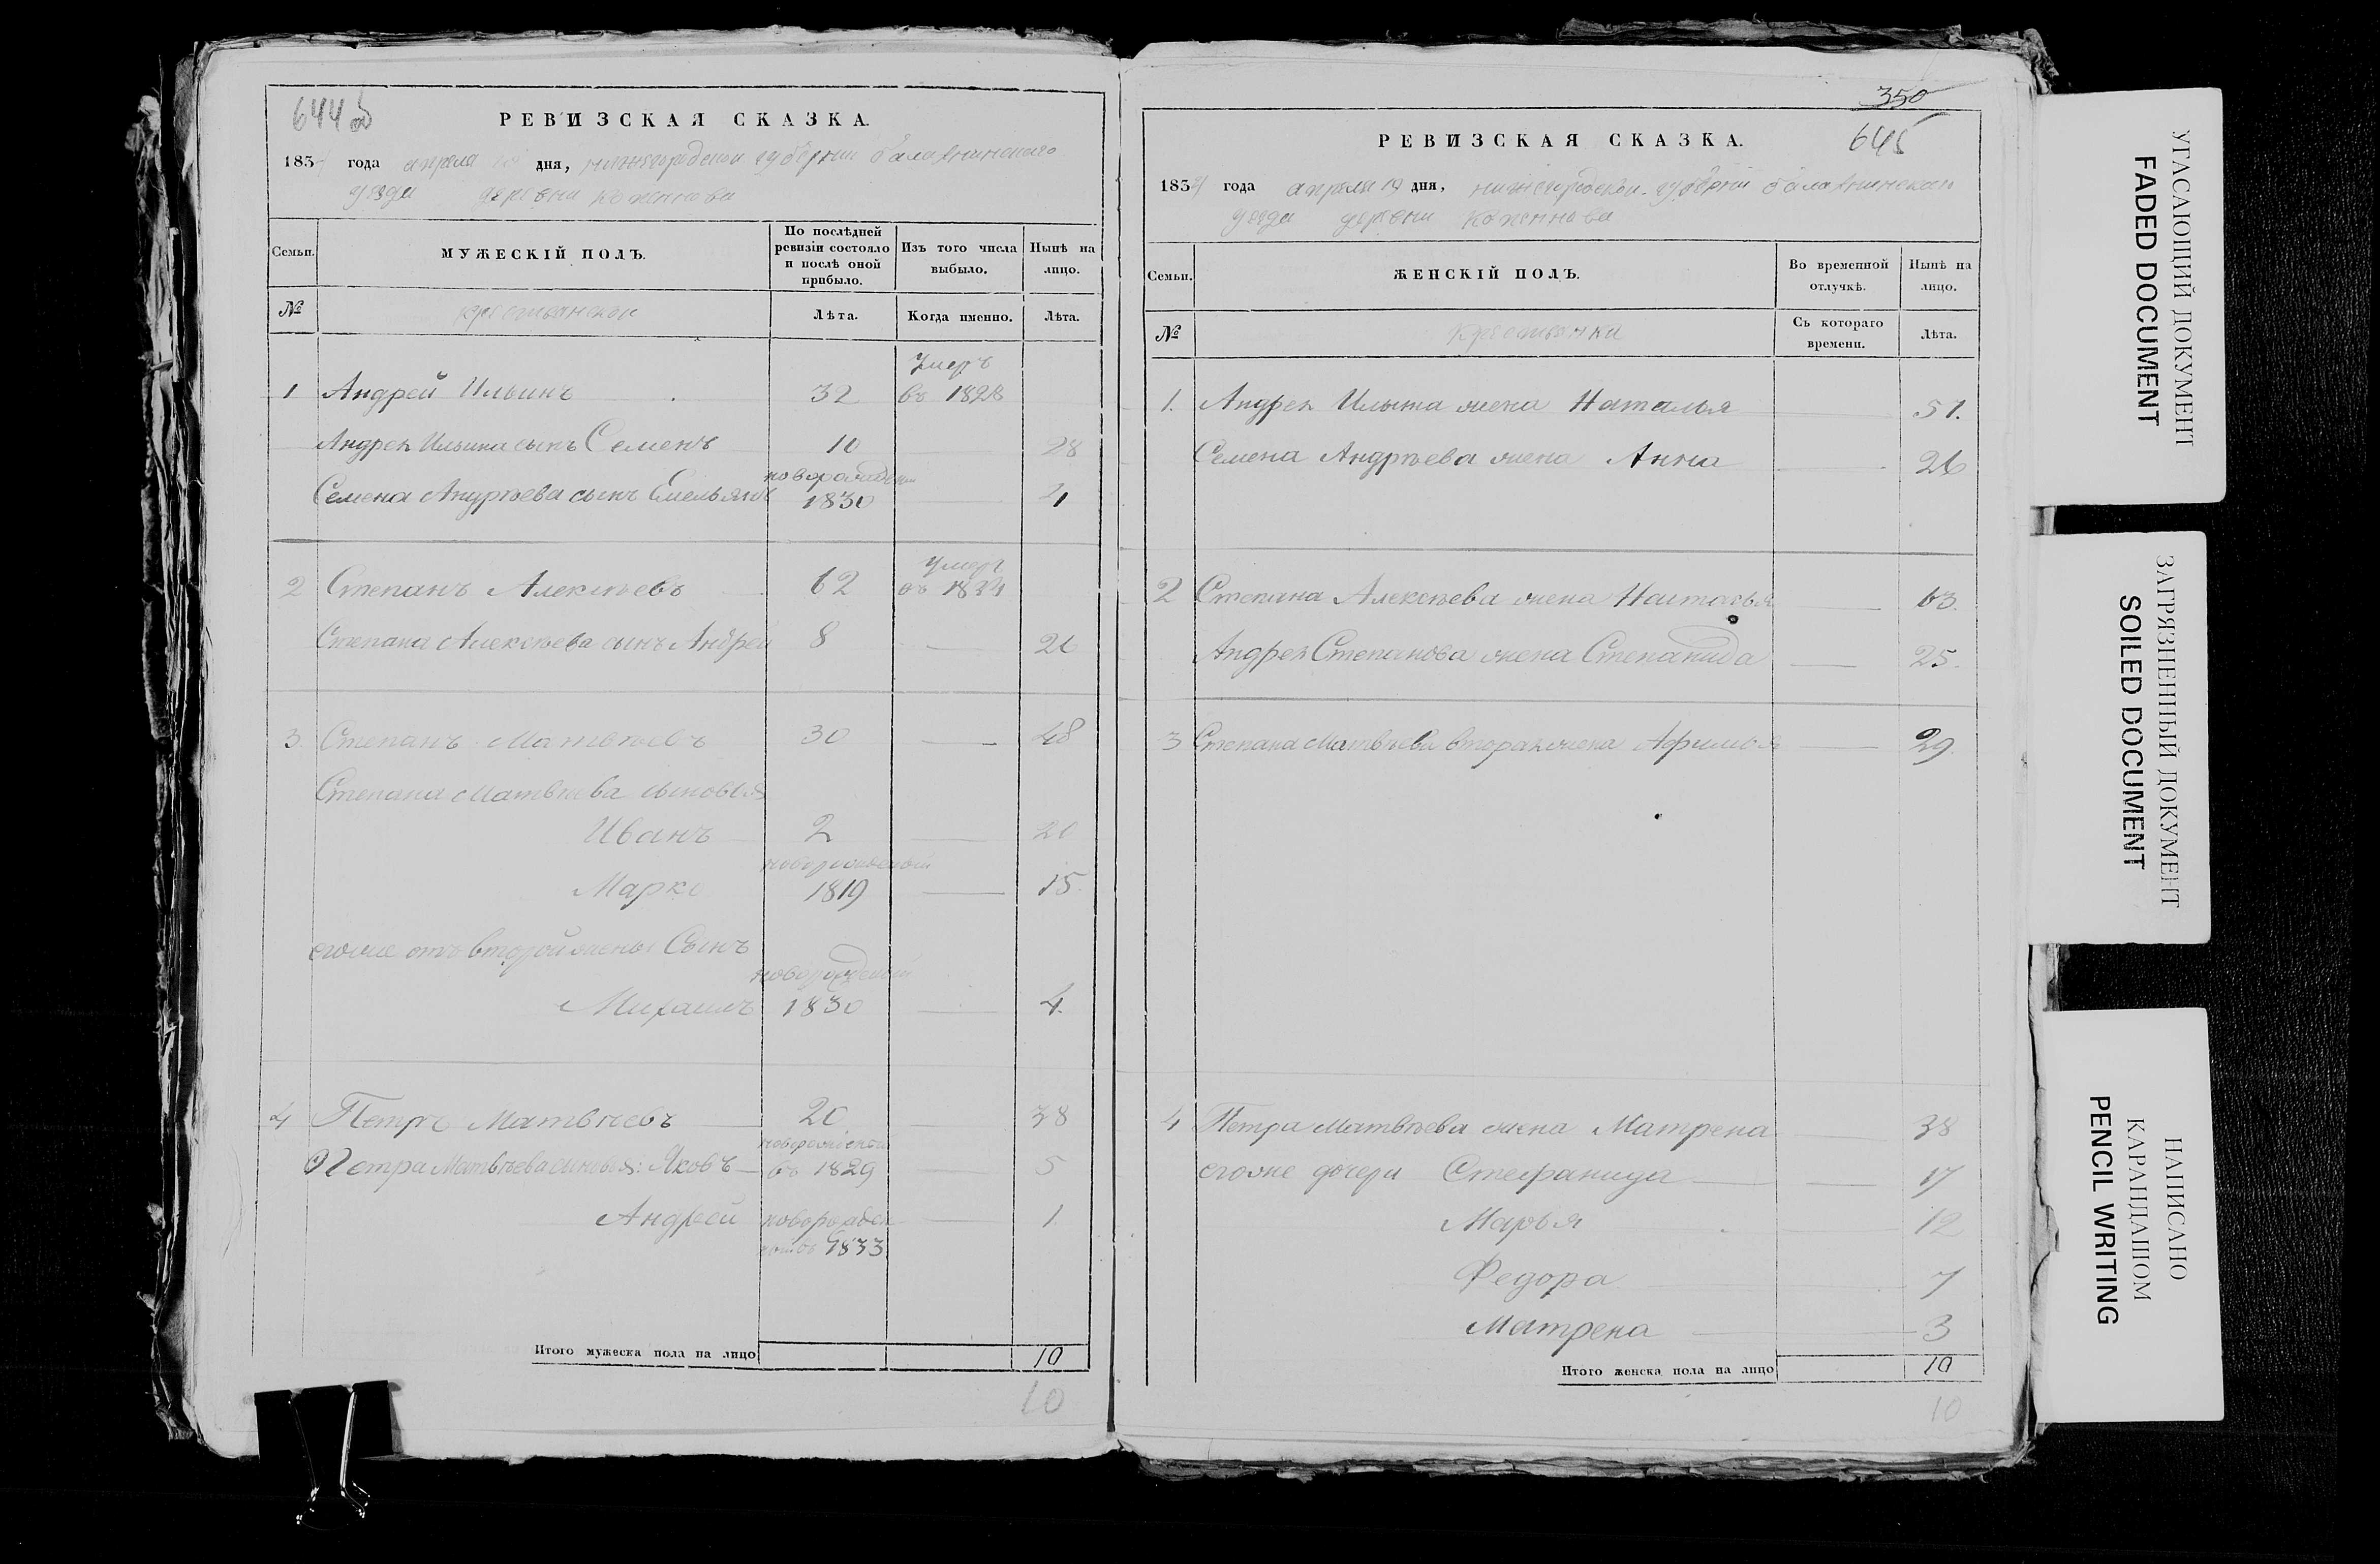 644 об
РЕВИЗСКАЯ СКАЗКА.
1834 года апреля дня, нижегородской губернии балахнинского
уезда деревни Коженнова
Семьи.
МУЖЕСКІЙ ПОЛЪ.
По послѣдней ревизіи состояло и послѣ оной прибыло.
Изъ того числа выбыло.
Нынѣ на лицо.
№
Лѣта.
Когда именно.
Лѣта.
Умеръ
1 Андрей Ильинъ 32 въ 1828
Андрея Ильина сынъ Семенъ 10 28
новорожден
Семена Андрѣева сынъ Емельянъ 1830 4
Умеръ
2 Степанъ Алексѣевъ 62 въ
Степана Алексѣева сынъ Андрей 8 26
3. Степанъ Матвѣевъ 30 48
Степана Матвѣева сыновья
Иванъ 2 20
новорожденой
Марка 1819 15.
егоже отъ второй жены Сынъ
новорожденой
Михаилъ 1830 4.
4 Петръ Матвѣевъ 20 38
новорожденой
Петра Матвѣева сыновья: Яковъ въ 1829 5
Андрей новорожден 1.
1833
Итого мужеска пола на лицо 10
10
350
645
РЕВИЗСКАЯ СКАЗКА.
1834 года апреля 19 дня, нижегородской губерніи балахнинскаго
уезда деревни Коженнова
Семьи.
ЖЕНСКІЙ ПОЛЪ.
Во временной отлучкѣ.
Нынѣ на лицо.
№
Крестьянки
Съ котораго времени.
Лѣта.
1. Андрея Ильина жена Наталья 51.
Семена Андрѣева жена Анна 26
2 Степана Алексѣева жена Настасья 63.
Андрея Степанова жена Степанида 25.
3 Степана Матвѣева вторая жена Афимья 29.
4 Петра Матвѣева жена Матрена 38
егоже дочери Стефанида 17
Марья 12
Федора 7
Матрена 3
Итого женска пола на лицо 10
10
УГАСАЮЩИЙ ДОКУМЕНТ
FADED DOCUMENT
ЗАГРЯЗНЕННЫЙ ДОКУМЕНТ
SOILED DOCUMENT
НАПИСАНО
КАРАНДАШОМ
PENCIL WRITING